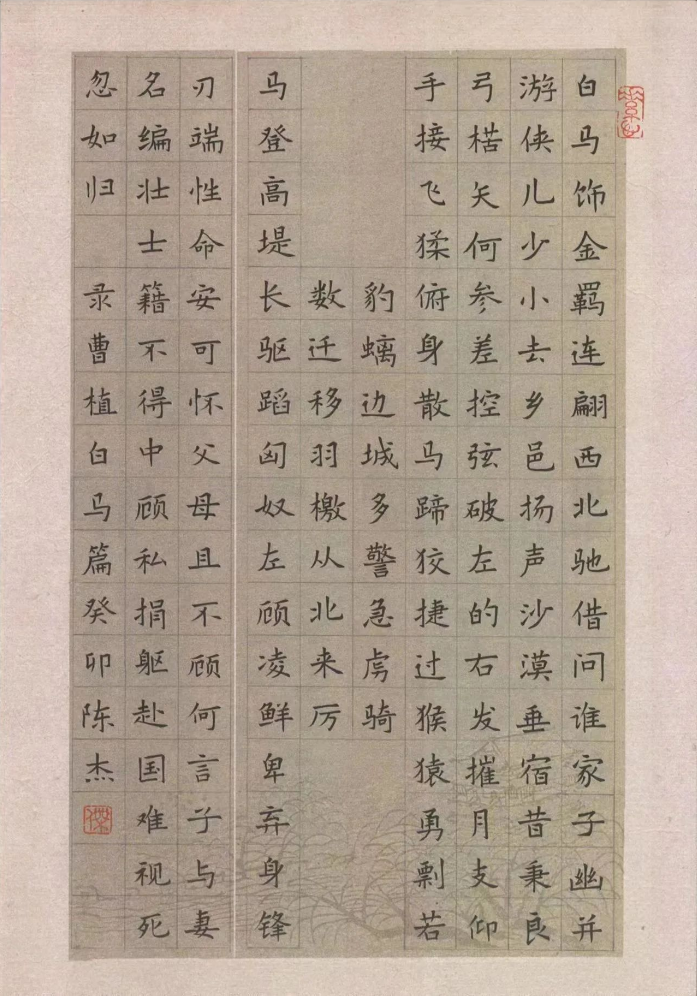 白马饰金羁连翩西北驰借问谁家子幽并
游侠儿少小去乡邑扬声沙漠垂宿昔秉良
弓楛矢何参差控弦破左的右发摧月支仰
手接飞猱俯身散马蹄狡捷过猴猿勇剽若
豹螭边城多警急虏骑
数迁移羽檄从北来厉
马登高堤长驱蹈匈奴左顾凌鲜卑弃身锋
刃端性命安可怀父母且不顾何言子与妻
名编壮士籍不得中顾私捐躯赴国难视死
忽如归 录曹植白马篇癸卯陈杰